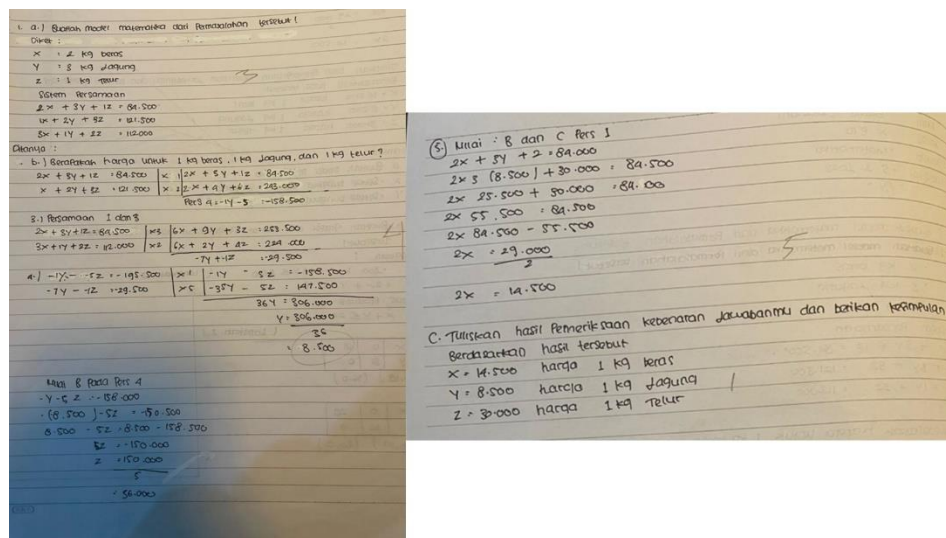 1. a.) Buatlah model matematika dari Permasalahan tersebut!
Diket :
X = 2 kg beras
Y = 3 kg Jagung
Z = 1 kg Telur
Sistem Persamaan
2x + 3y + 1z = 84.500
1x + 2y + 3z = 121.500
3x + 1y + 2z = 112.000
Ditanya :
b.) Berapakah harga untuk 1 kg beras, 1 kg Jagung, dan 1 kg telur?
2x + 3y + 1z = 84.500 | x 1 | 2x + 3y + 1z = 84.500
x + 2y + 3z = 121.500 | x 2 | 2x + 4y + 6z = 243.000
Pers 4 = -1y - 5 = -158.500
3.) Persamaan 1 dan 3
2x + 3y + 1z = 84.500 | x3 | 6x + 9y + 3z = 253.500
3x + 1y + 2z = 112.000 | x2 | 6x + 2y + 4z = 224.000
-7y + 1z = -29.500
4.) -1y - -5z = -195.500 | x 1 | -1y - 5z = -158.500
-7y - -1z = -29.500 | x5 | -35y - 5z = 147.500
36y = 306.000
y = 306.000
36
= 8.500
Nilai B Pada Pers 4
-y - 5z = -158.000
-(8.500) - 5z = -150.500
8.500 - 5z = 8.500 - 158.500
5z = -150.000
z = 150.000
5
= 30.000
3
4
5.) Nilai : B dan C Pers 1
2x + 3y + z = 84.000
2x 3 (8.500) + 30.000 = 84.500
2x 25.500 + 30.000 = 84.00
2x 55.500 = 84.500
2x 84.500 - 55.500
2x = 29.000
2
2x = 14.500
5
C. Tuliskan hasil Pemeriksaan kebenaran Jawabanmu dan berikan kesimpulan
Berdasarkan hasil tersebut
X = 14.500 harga 1 kg beras
Y = 8.500 harga 1 kg Jagung
Z = 30.000 harga 1 kg Telur
1